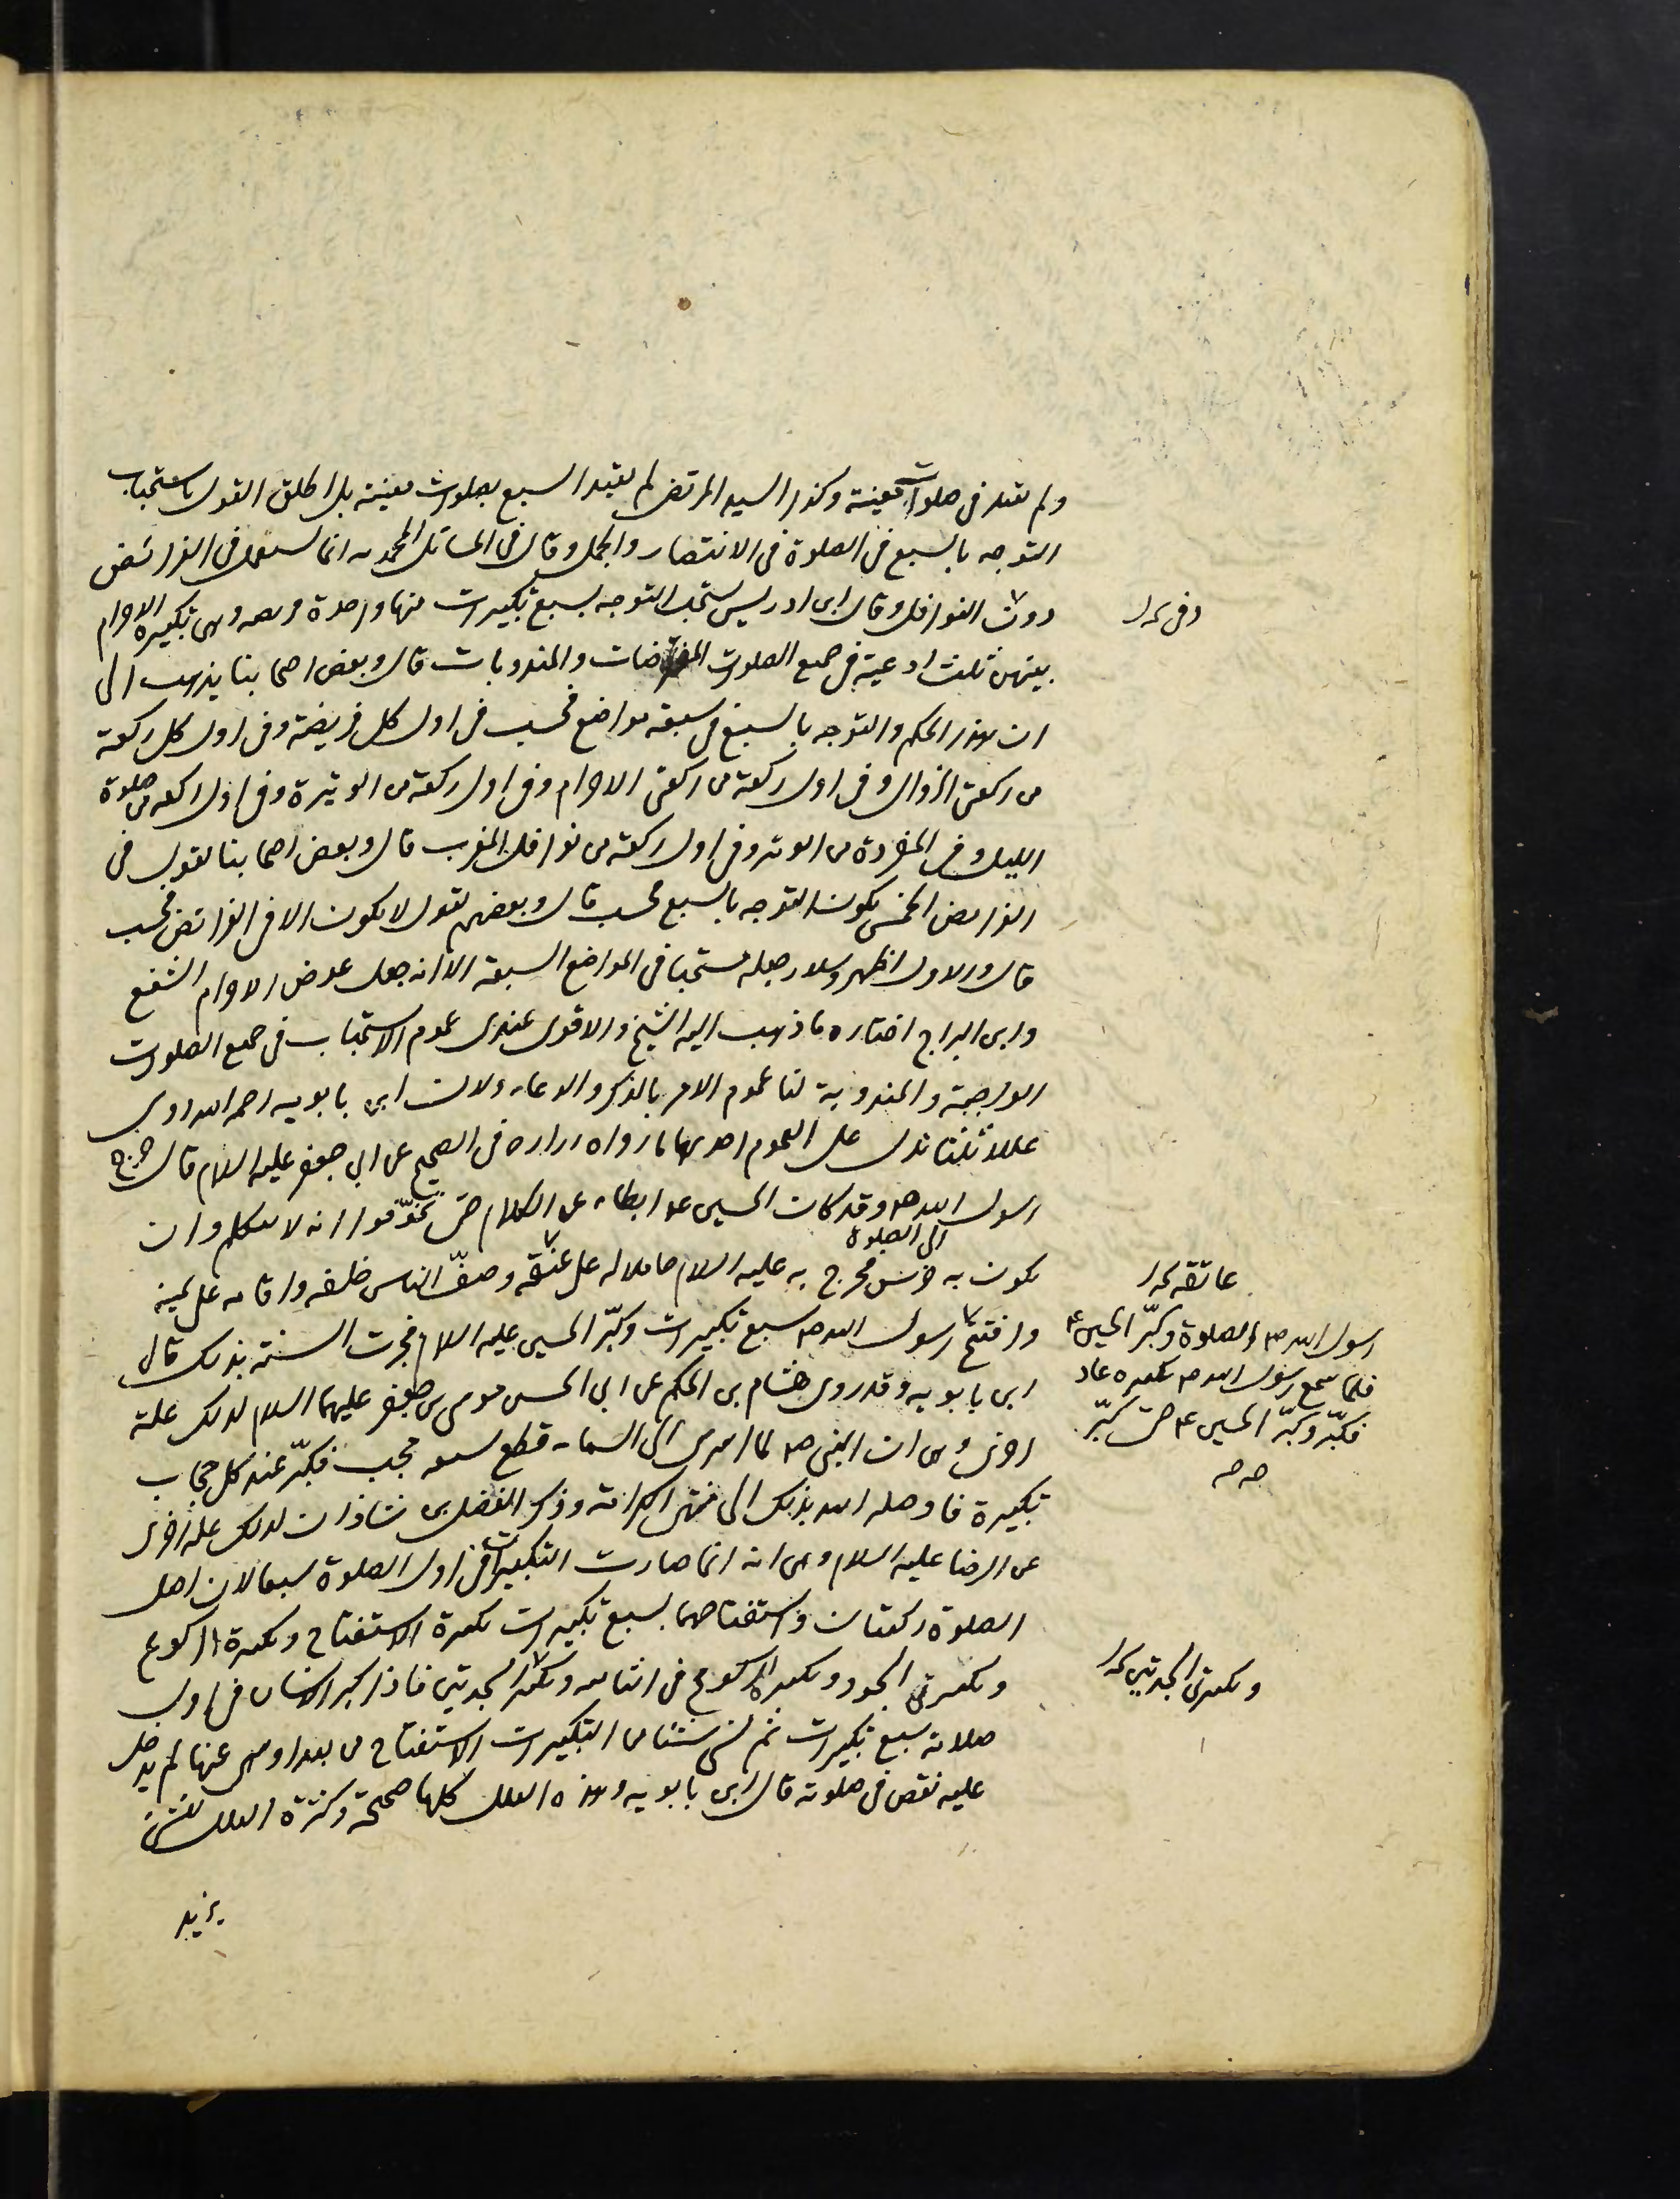 ولم يقيد في صلوات معينة وكذا السيد المرتضى لم يقيد السبع بصلوات معينة بل اطلق القول باستحباب
التوجه بالسبع في الصلوة في الانتصار والجمل وقال في المسائل المحمدية انما يستعمل في الفرائض
دون النوافل وقال ابن ادريس يستحب التوجه بسبع تكبيرات منها واحدة فريضة وهي تكبيرة الاحرام
بينهن ثلث ادعية في جميع الصلوات المفترضات والمندوبات قال وبعض اصحابنا يذهب الى
ان هذا الحكم والتوجه بالسبع في سبعة مواضع فحسب في اول كل فريضة وفي اول كل ركعة
من ركعتي الزوال وفي اول ركعة من ركعتي الاحرام وفي اول ركعة من الوتيرة وفي اول ركعة من صلوة
الليل وفي المفردة من الوتر وفي اول ركعة من نوافل المغرب قال وبعض اصحابنا يقول في
الفرائض الخمس يكون التوجه بالسبع فحسب قال وبعضهم يقول لا يكون الا في الفرائض فحسب
قال والاول اظهر وسلار جعله مستحبا في المواضع السبعة الا انه جعل عوض الاحرام الشفع
وابن البراج اختاره ما ذهب اليه الشيخ والاقوى عندي عموم الاستحباب في جميع الصلوات
الواجبة والمندوبة لنا عموم الامر بالذكر والدعاء ولان ابن بابويه رحمه الله روى
عللا ثلثا تدل على العموم احديها ما رواه زرارة في الصحيح عن ابي جعفر عليه السلام قال خرج
رسول الله ص وقد كان الحسين ع ابطاء عن الكلام حتى تخوفوا انه لا يتكلم وان
الى الصلوة
يكون به خرس فخرج به عليه السلام حاملا له على عنقه وصف الناس خلفه واقامه على يمينه
وافتتح رسول الله ص سبع تكبيرات وكبر الحسين عليه السلام فجرت السنة بذلك قال
ابن بابويه وقد روى هشام بن الحكم عن ابي الحسن موسى بن جعفر عليهما السلام لذلك علة
اخرى وهي ان النبي ص لما اسري الى السماء قطع سبعة حجب فكبر عند كل حجاب
تكبيرة فاوصله الله بذلك الى منتهى الكرامة وذكر الفضل بن شاذان لذلك علة اخرى
عن الرضا عليه السلام وهي انه انما صارت التكبيرات في اول الصلوة سبعا لان اصل
الصلوة ركعتان واستفتاحهما بسبع تكبيرات تكبيرة الاستفتاح وتكبيرة الركوع
وتكبيرتي السجود وتكبيرة الركوع في الثانية وتكبير السجدتين فاذا كبر الانسان في اول
صلاته سبع تكبيرات ثم نسي شيئا من التكبيرات الاستفتاح من بعد او سهى عنها لم يدخل
عليه نقص في صلوته قال ابن بابويه وهذه العلل كلها صحيحة وكثرة العلل للشيء
يزيد
عاتقه
رسول الله ص الصلوة وكبر الحسين ع
فلما سمع رسول الله ص تكبيره عاد
فكبر وكبر الحسين ع حتى كبر
وتكبيرتي السجدتين